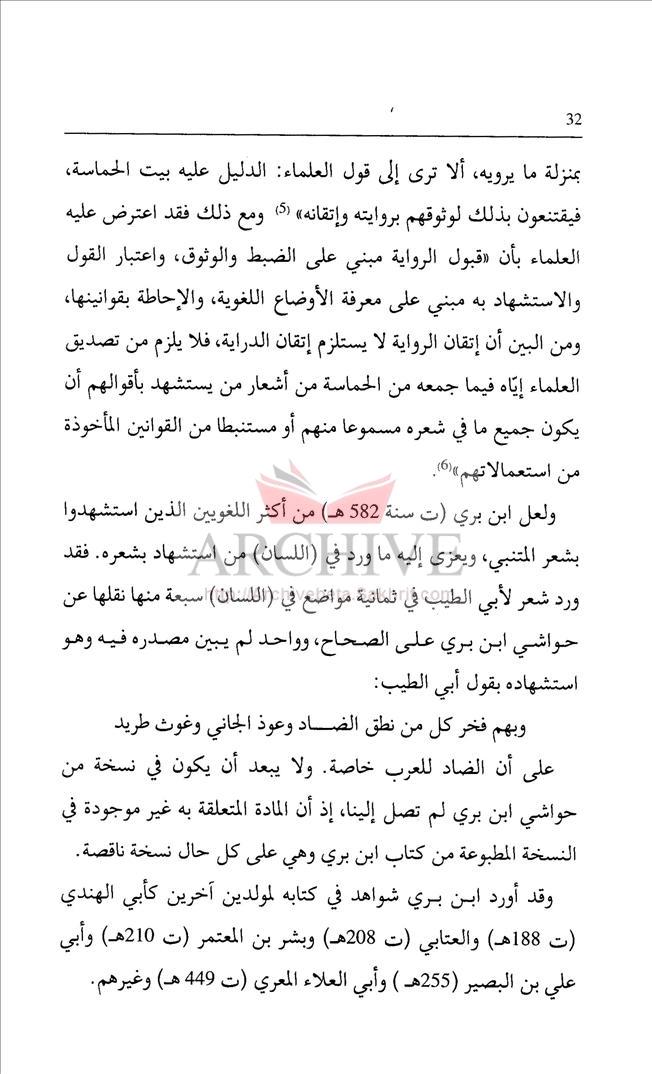 32
بمنزلة ما يرويه، ألا ترى إلى قول العلماء: الدليل عليه بيت الحماسة،
فيقتنعون بذلك لوثوقهم بروايته وإتقانه» (5) ومع ذلك فقد اعترض عليه
العلماء بأن «قبول الرواية مبني على الضبط والوثوق، واعتبار القول
والاستشهاد به مبني على معرفة الأوضاع اللغوية، والإحاطة بقوانينها،
ومن البين أن إتقان الرواية لا يستلزم إتقان الدراية، فلا يلزم من تصديق
العلماء إيّاه فيما جمعه من الحماسة من أشعار من يستشهد بأقوالهم أن
يكون جميع ما في شعره مسموعا منهم أو مستنبطا من القوانين المأخوذة
من استعمالاتهم»(6).
ولعل ابن بري (ت سنة 582 هـ) من أكثر اللغويين الذين استشهدوا
بشعر المتنبي، ويعزى إليه ما ورد في (اللسان) من استشهاد بشعره. فقد
ARCHIVE
ورد شعر لأبي الطيب في ثمانية مواضع في (اللسان) سبعة منها نقلها عن
http://archivebeta.Sakhrit.com
حواشي ابن بري على الصحاح، وواحد لم يبين مصدره فيه وهو
استشهاده بقول أبي الطيب:
وبهم فخر كل من نطق الضـــاد وعوذ الجاني وغوث طريد
على أن الضاد للعرب خاصة. ولا يبعد أن يكون في نسخة من
حواشي ابن بري لم تصل إلينا، إذ أن المادة المتعلقة به غير موجودة في
النسخة المطبوعة من كتاب ابن بري وهي على كل حال نسخة ناقصة.
وقد أورد ابن بري شواهد في كتابه لمولدين آخرين كأبي الهندي
(ت 188هـ) والعتابي (ت 208هـ) وبشر بن المعتمر (ت 210هـ) وأبي
علي بن البصير (255هـ ) وأبي العلاء المعري (ت 449 هـ) وغيرهم.